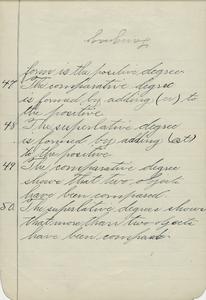 form is the positive degree
47 The comparative degree
is formed by adding (er) to
the positive
48 The superlative degree
is formed by adding (est)
to the positive
49. The comparative degree
shows that two objects
have been compared.
50 The superlative degree shows
that more than two objects
have been compared.